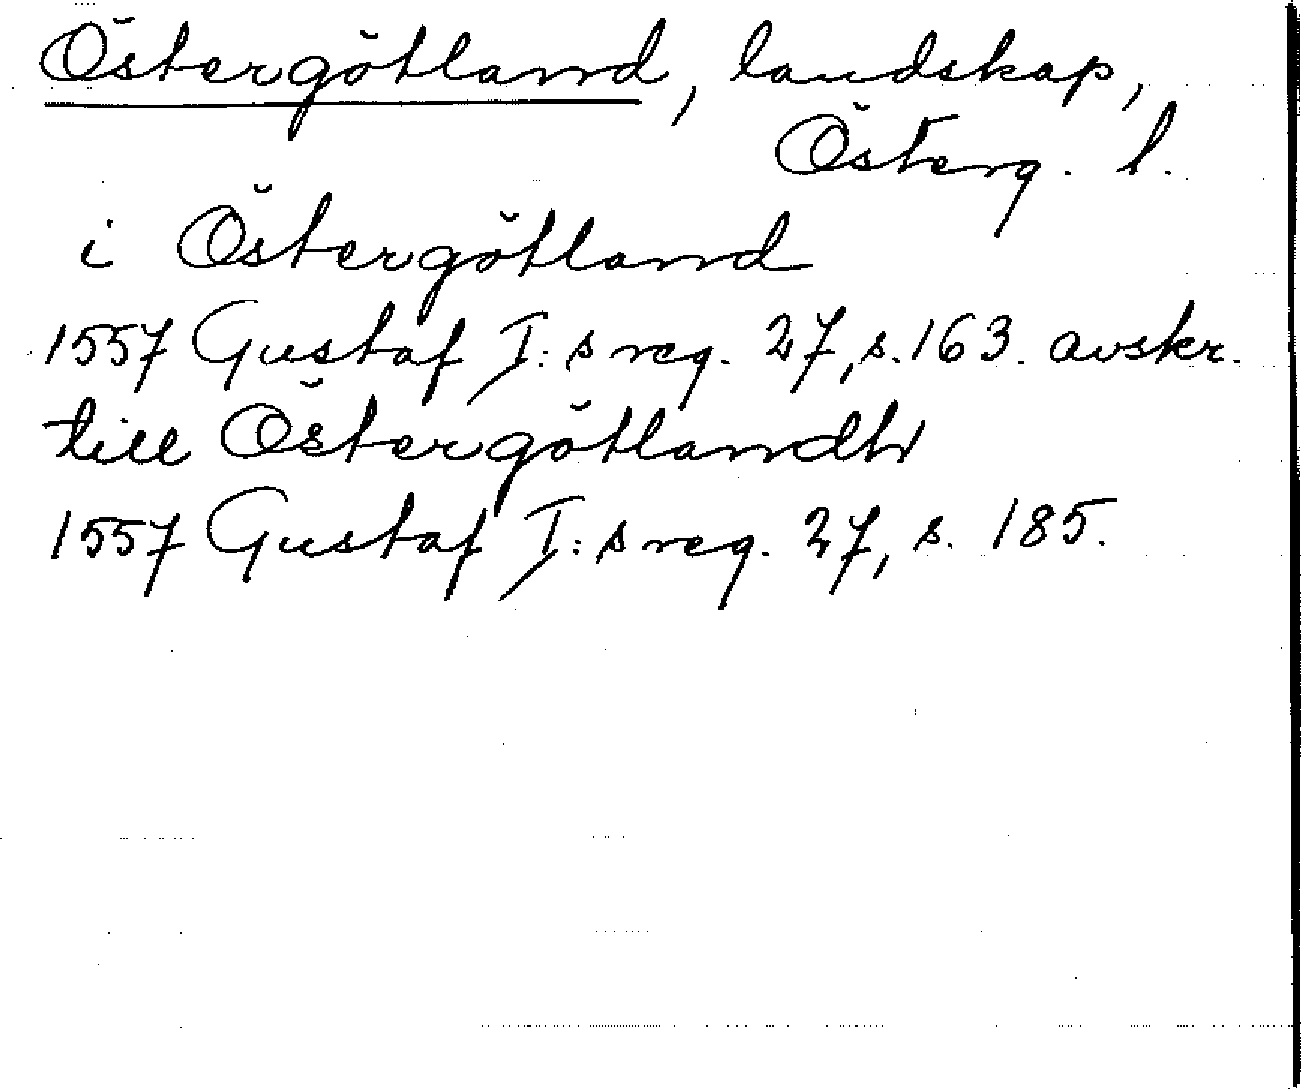 Östergötland, landskap,
Österg. l.
i Östergötland
1557 Gustaf I:s reg. 27, s. 163. avskr.
till Östergötlandh
1557 Gustaf I:s reg. 27, s. 185.